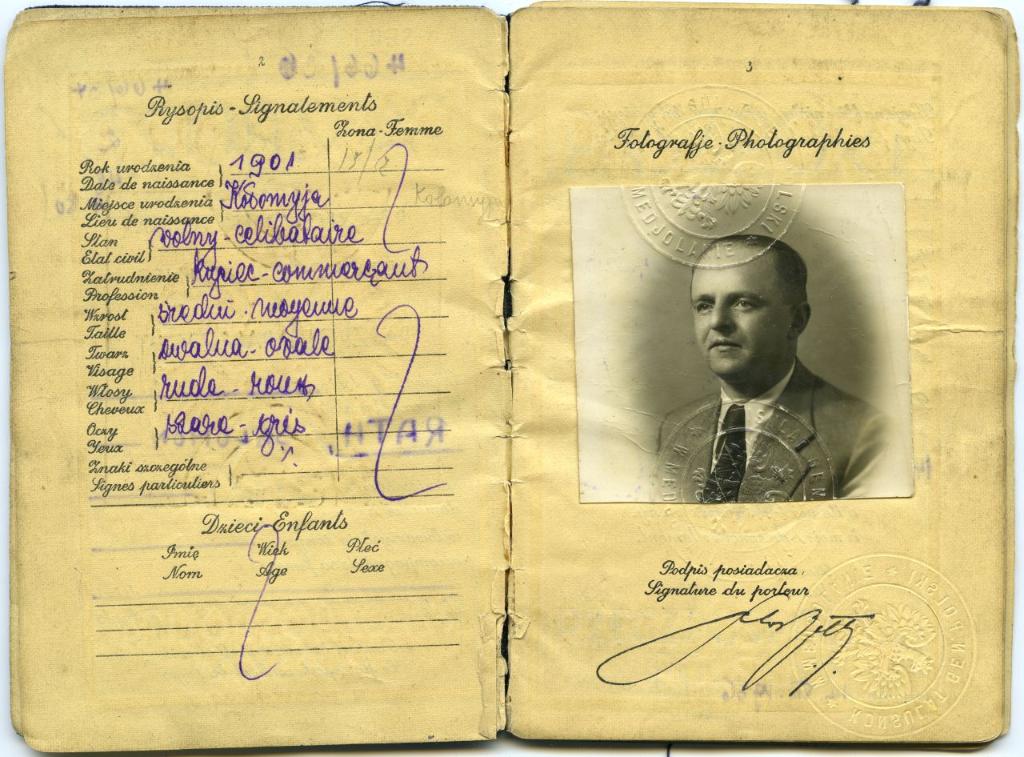 2
Rysopis - Signalements
Żona - Femme
Rok urodzenia
Date de naissance
1901
Miejsce urodzenia
Lieu de naissance
Kołomyja
Kołomyja
Stan
Etat civil
wolny - celibataire
Zatrudnienie
Profession
kupiec - commerçant
Wzrost
Taille
średni - moyenne
Twarz
Visage
owalna - ovale
Włosy
Cheveux
rude - roux
Oczy
Yeux
szare - gris
Znaki szczególne
Signes particuliers
Dzieci - Enfants
Imię Wiek Płeć
Nom Age Sexe
3
Fotografje - Photographies
MEDJOLANIE
Podpis posiadacza,
Signature du porteur
KONSULAT GEN